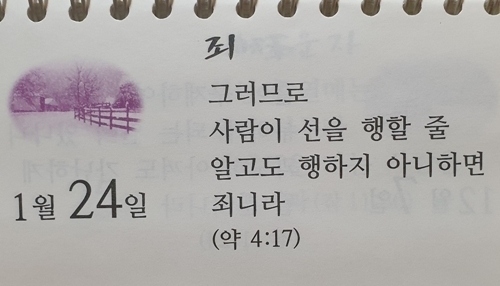 죄
그러므로
사람이 선을 행할 줄
알고도 행하지 아니하면
죄니라
(약 4:17)
1월 24일